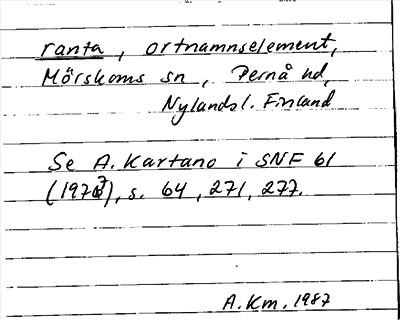 ranta, ortnamnselement,
Mörskoms sn, Pernå hd,
Nylandsl. Finland
Se A. Kartano i SNF 61
(1977), s. 64, 271, 277.
A.Km. 1987